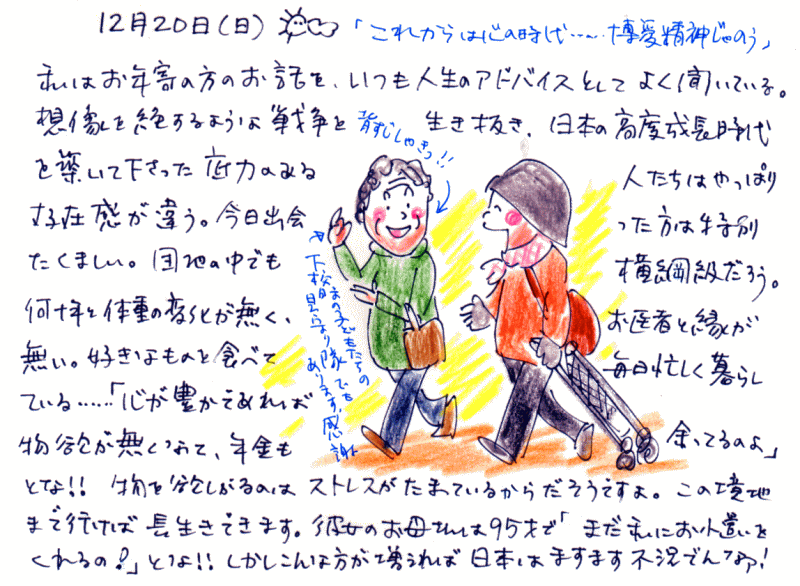 12月20日(日)
「これからは心の時代……博愛精神じゃのう」
私はお年寄の方のお話を、いつも人生のアドバイスとしてよく聞いている。
想像を絶するような戦争を 生き抜き、日本の高度成長時代
を築いて下さった底力のある 人たちはやっぱり
存在感が違う。今日出会 った方は特別
たくましい。団地の中でも 横綱級だろう。
何十年と体重の変化が無く、 お医者と縁が
無い。好きなものを食べて 毎日忙しく暮らし
ている……「心が豊かであれば
物欲が無くなって、年金も 余ってるのよ」
とな!! 物を欲しがるのはストレスがたまっているからだそうですよ。この境地
まで行けば長生きできます。彼女のお母さんは95才で「まだ私にお小遣いを
くれるの!」とな!! しかしこんな方が増えれば日本はますます不況でんなァ!
背すじしゃきっ!!
下松団地の子どもたちの
見守り隊でも
あります。感謝